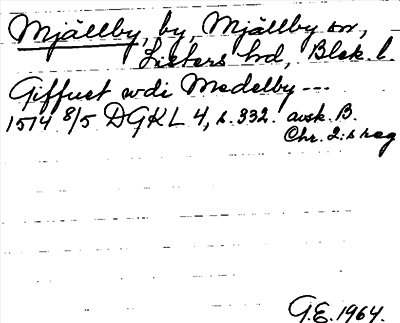 Mjällby, by, Mjällby sn,
Listers hd, Blek. l.
Giffuet wdi Medelby ---
1514 8/5 DGKL 4, s. 332. avsk. B.
Chr. 2:s reg
G.E. 1964.